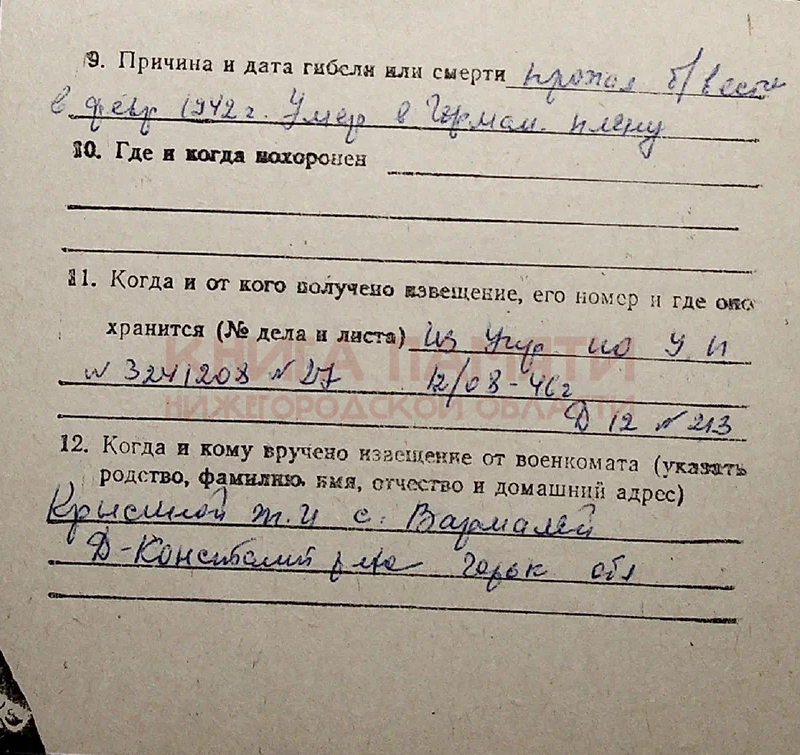 9. Причина и дата гибели или смерти пропал б/вести
в февр 1942 г. Умер в Герман. плену
10. Где и когда похоронен
11. Когда и от кого получено извещение, его номер и где оно
хранится (№ дела и листа) из Упр по У И
КНИГА ПАМЯТИ
N 324/208 N 27 12/08-46 г
НИЖЕГОРОДСКОЙ ОБЛАСТИ
Д 12 N 213
12. Когда и кому вручено извещение от военкомата (указать
родство, фамилию, имя, отчество и домашний адрес)
Крысиной М.И с. Вармалей
Д-Констан р-на Горьк обл